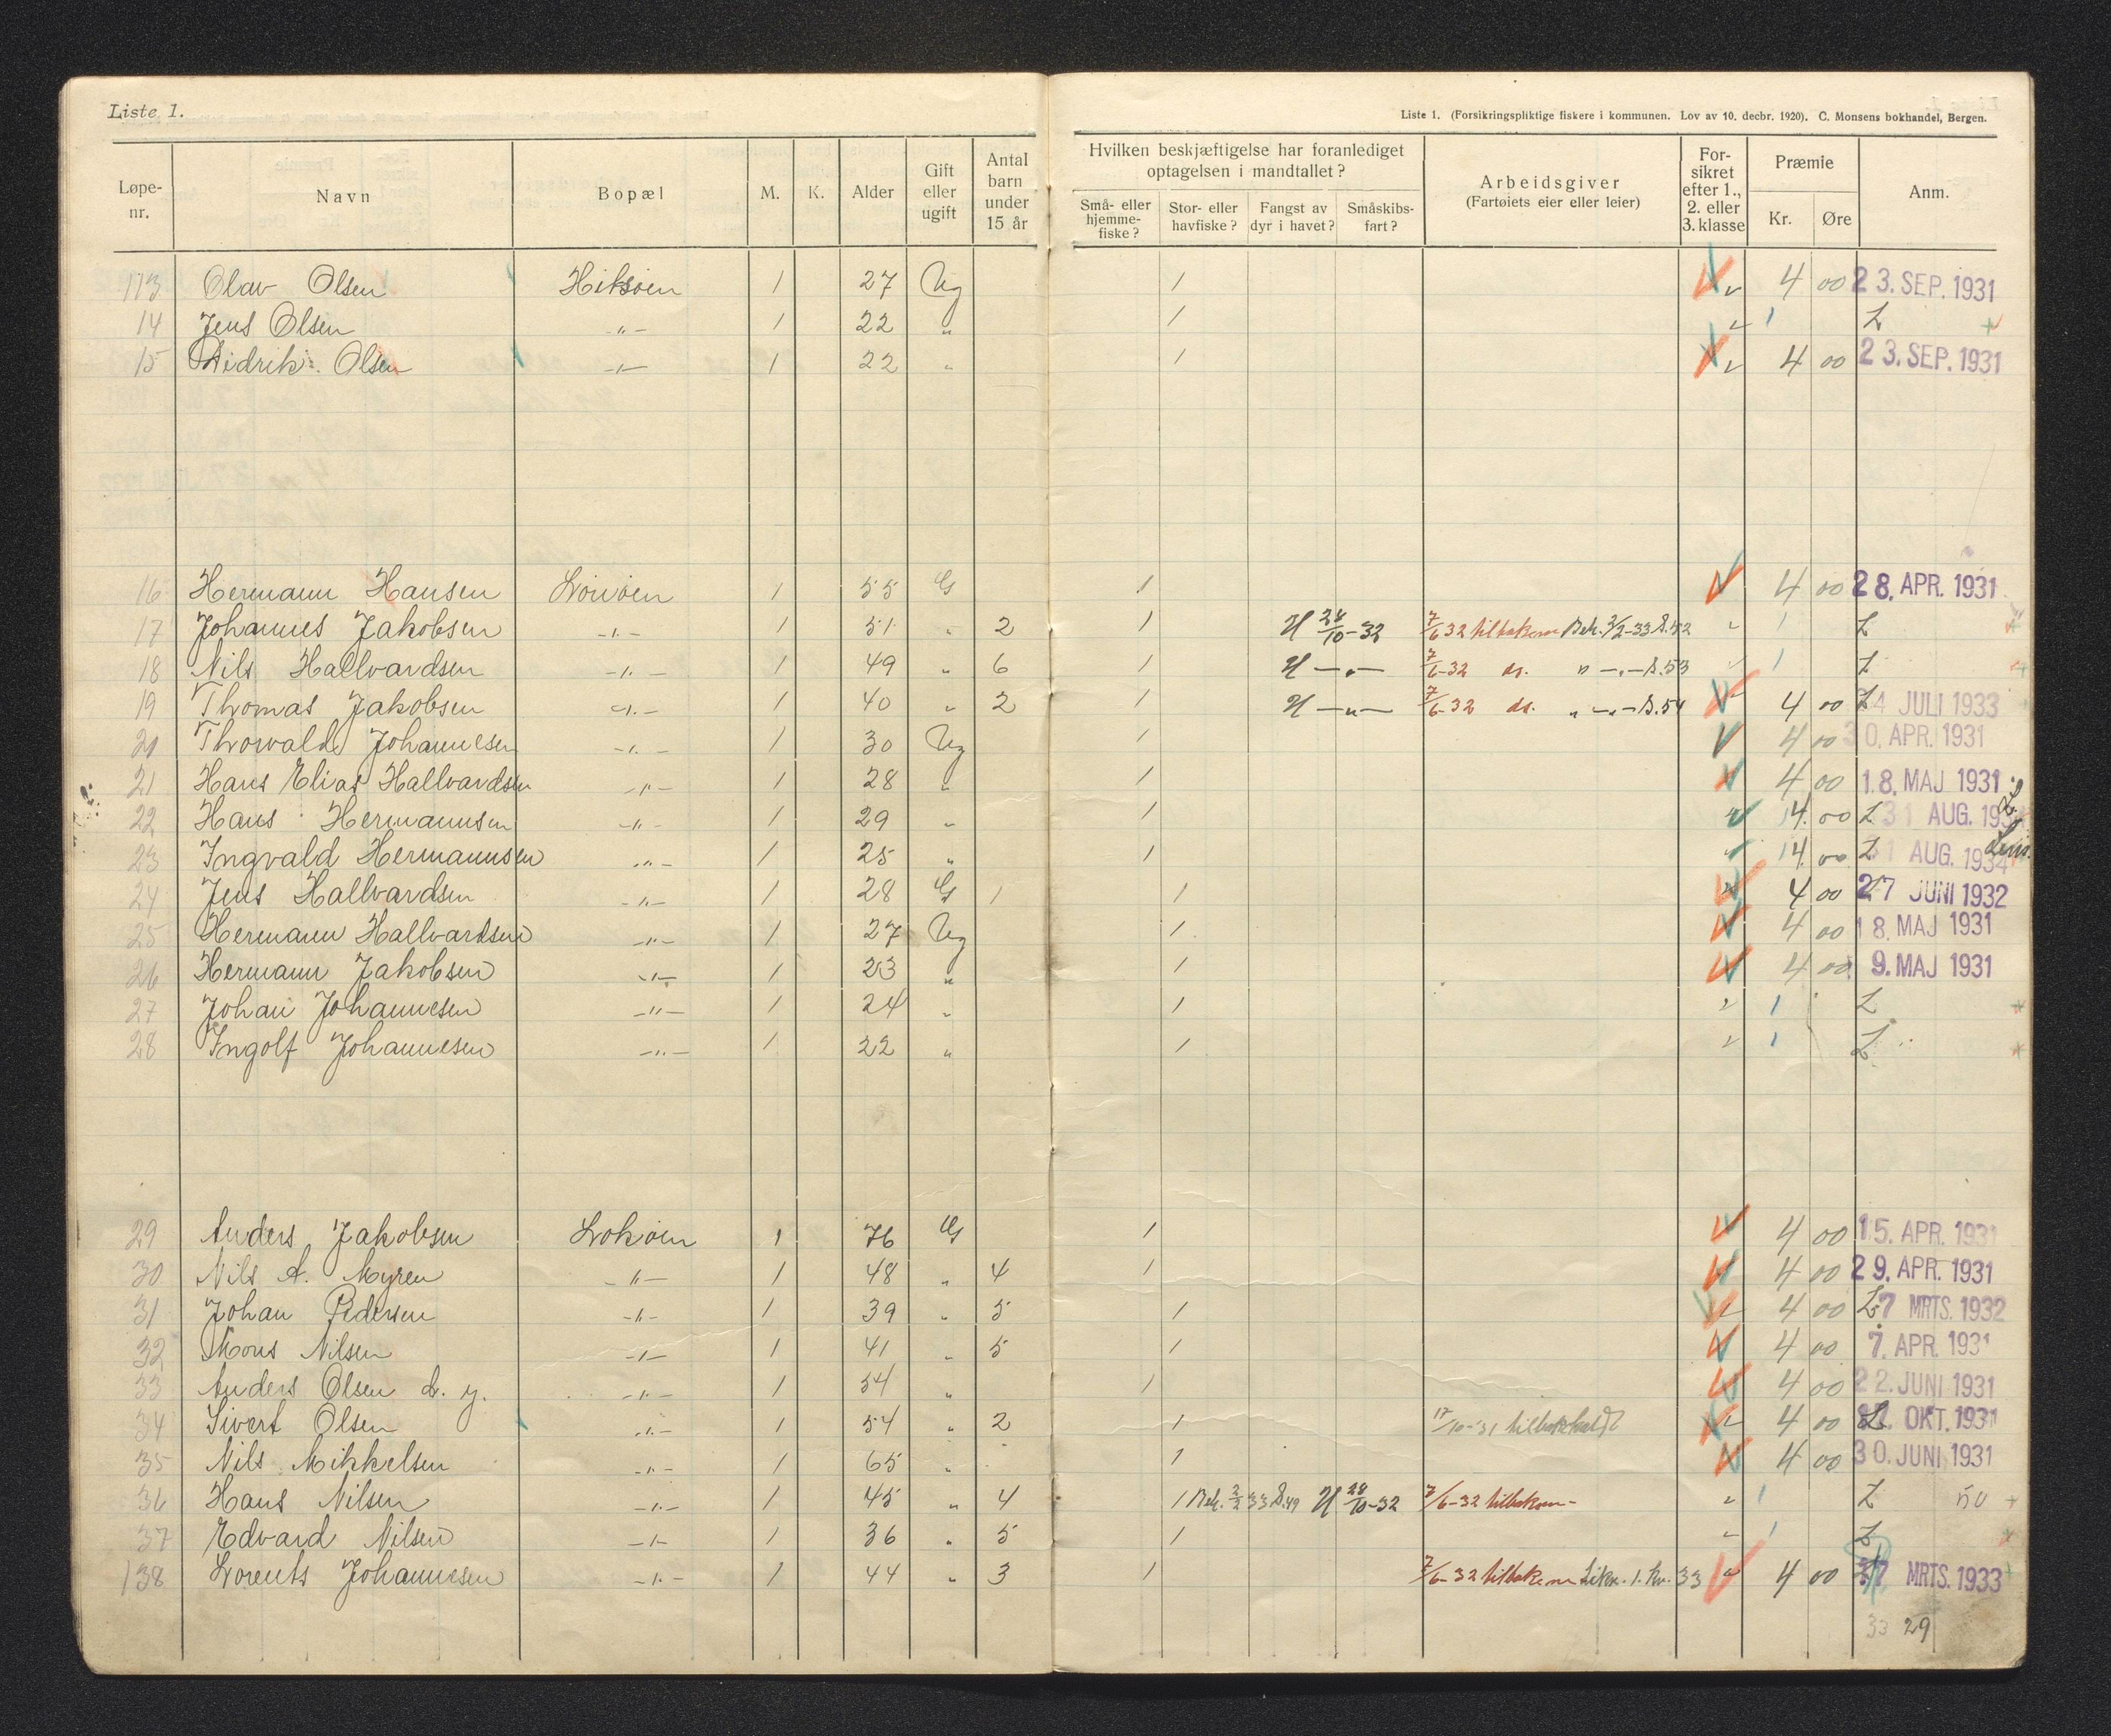 Liste 1.
Liste 1. (Forsikringspliktige fiskere i kommunen. Lov av 10. decbr. 1920). C. Monsens bokhandel, Bergen.
Løpe-nr. Navn Bopæl M. K. Alder Gift eller ugift Antal barn under 15 år Hvilken beskjæftigelse har foranlediget optagelsen i mandtallet? Arbeidsgiver (Fartøiets eier eller leier) For-sikret efter 1., 2. eller 3. klasse Præmie Anm.
Små- eller hjemme-fiske? Stor- eller havfiske? Fangst av dyr i havet? Småskibs-fart? Kr. Øre
113 Olav Olsen Hiksøen 1 27 Ug 1 4 00 23. SEP. 1931
14 Jens Olsen -"- 1 22 " 1 1 L
15 Didrik Olsen -"- 1 22 " 1 4 00 23. SEP. 1931
16 Hermann Hansen Lønøen 1 55 G 1 4 00 28. APR. 1931
17 Johannes Jakobsen -"- 1 51 " 2 1 U 28/10-32 7/6 32 tilbakem Bek. 2/2-33 S.52 1 L
18 Nils Hallvardsen -"- 1 49 " 6 1 U -"- 7/6-32 do. " -"- S.53 1 L
19 Thomas Jakobsen -"- 1 40 " 2 1 U -"- 7/6-32 do. " -"- S.54 4 00 L 24 JULI 1933
20 Thorvald Johannesen -"- 1 30 Ug 1 4 00 30. APR. 1931
21 Hans Elias Hallvardsen -"- 1 28 " 1 4 00 18. MAJ 1931
22 Hans Hermannsen -"- 1 29 " 1 4. 00 L 31 AUG. 1934
23 Ingvald Hermannsen -"- 1 25 " 1 4. 00 L 31 AUG. 1934
24 Jens Hallvardsen -"- 1 28 G 1 1 4 00 27 JUNI 1932
25 Hermann Hallvardsen -"- 1 27 Ug 1 4 00 18. MAJ 1931
26 Hermann Jakobsen -"- 1 23 " 1 4 00 9. MAJ 1931
27 Johan Johannesen -"- 1 24 " 1 1 L
28 Ingolf Johannesen -"- 1 22 " 1 1 L
29 Anders Jakobsen Lokøen 1 76 G 1 4 00 15. APR. 1931
30 Nils A. Myren -"- 1 48 " 4 1 4 00 29. APR. 1931
31 Johan Pedersen -"- 1 39 " 5 1 4 00 L 7 MRTS. 1932
32 Mons Nilsen -"- 1 41 " 5 1 4 00 7. APR. 1931
33 Anders Olsen d. y. -"- 1 54 " 1 4 00 22. JUNI 1931
34 Sivert Olsen -"- 1 54 " 2 1 17/10-31 tilbakekaldt 4 00 L OKT. 1931
35 Nils Mikkelsen -"- 1 65 " 1 4 00 30. JUNI 1931
36 Hans Nilsen -"- 1 45 " 4 1 Bek. 2/2 33 S.49 U 28/10-32 7/6-32 tilbakem- 1 L
37 Edvard Nilsen -"- 1 36 " 5 1 1 L
138 Lorents Johannesen -"- 1 44 " 3 1 7/6-32 tilbakem 33 4 00 MRTS. 1933
33 29